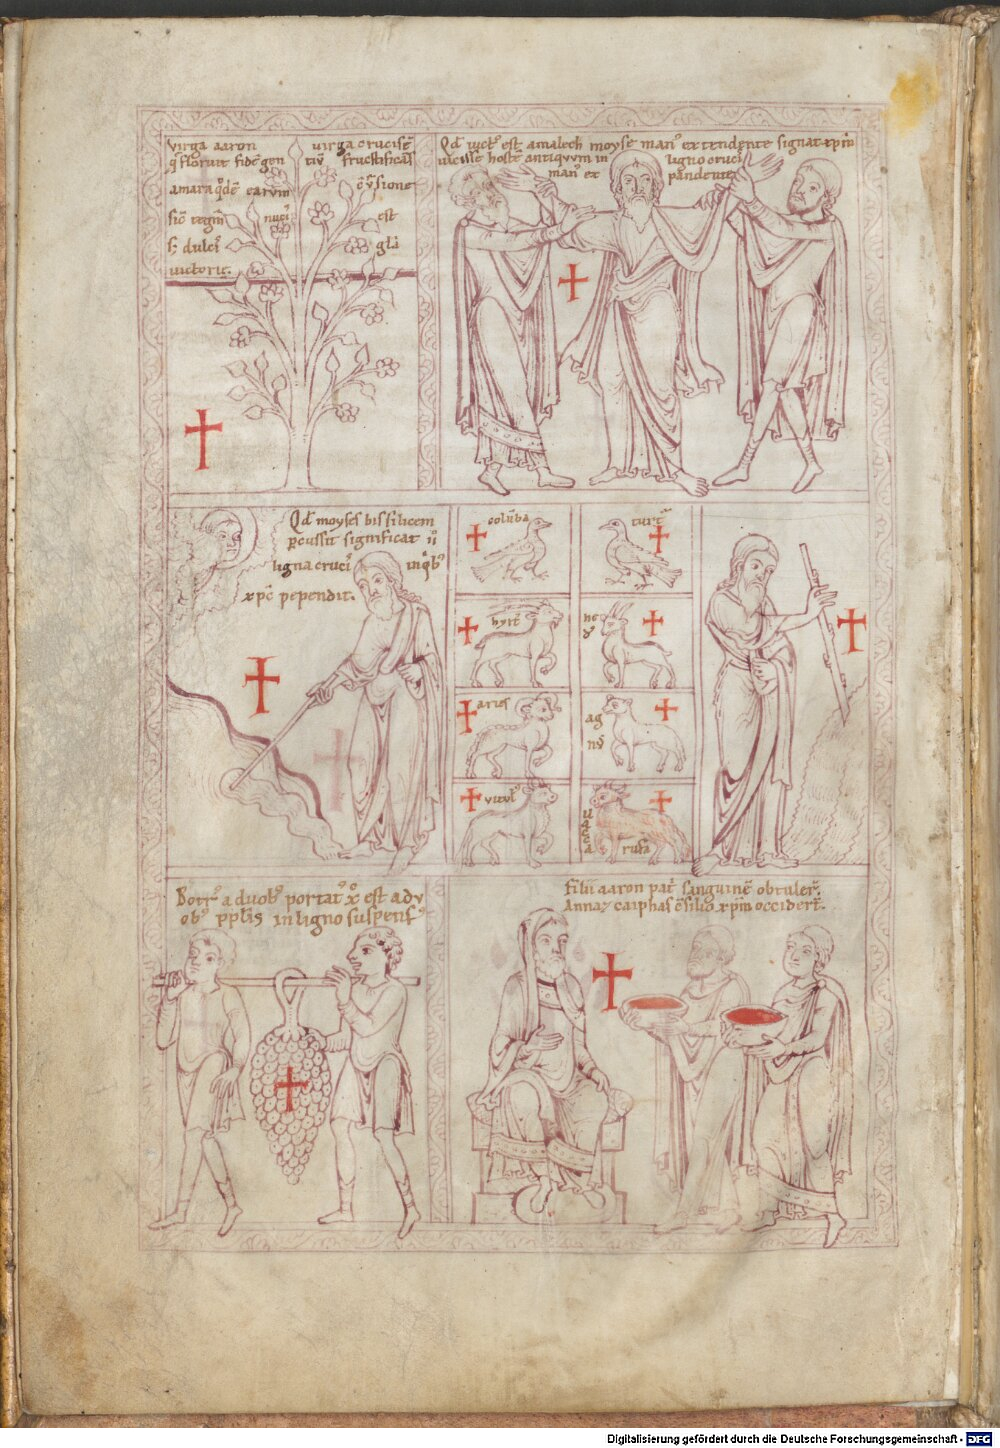 virga aaron virga crucis ē
q̄ floruit fidē gen tiū fructificās
amara q̇dē earum
nuci est
s; dulci gl̄i
victorię.
Qd̄ vict᷒ est amalech moysē man᷒ extendente signat xp̄m
uicisse hostē antiqvvm in ligno cruci
man᷒ ex pandente
Qd̄ moyses bis silicem
ꝑcussit significat ii᷒
ligna cruci in q̇b᷒
xp̄c pependit.
colūba
turt᷒
hyrc᷒
aries
ag
n᷒
vitul᷒
uacca
rufa
Botr᷒ a duob᷒ portat᷒ xp̄c est a dv
ob᷒ pp̄lis in ligno suspens᷒
Filii aaron patri sanguinē obtuler̄.
Annas ⁊ caiphas c̄silio xp̄m occidert̄.
Digitalisierung gefördert durch die Deutsche Forschungsgemeinschaft - DFG